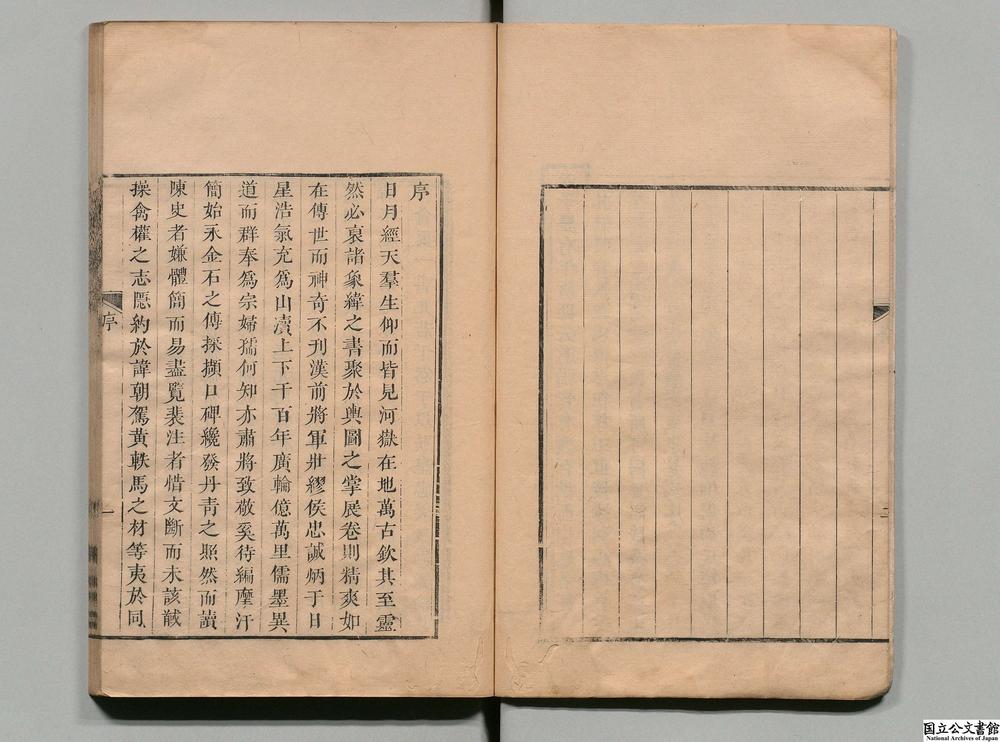 序
日月經天羣生仰而皆見河嶽在地萬古欽其至靈
然必裒諸象緯之書聚於輿圖之掌展卷則精爽如
在傳世而神奇不刊漢前將軍壯繆侯忠誠炳于日
星浩氣充爲山瀆上下千百年廣輪億萬里儒墨異
道而群奉爲宗婦孺何知亦肅將致敬奚待編摩汗
簡始永金石之傳採擷口碑纔發丹靑之照然而讀
陳史者嫌體簡而易盡覽裴注者惜文斷而未該戡
操禽權之志隱約於諱朝駕黃軼馬之材等夷於同
序
一
二
国立公文書館
National Archives of Japan